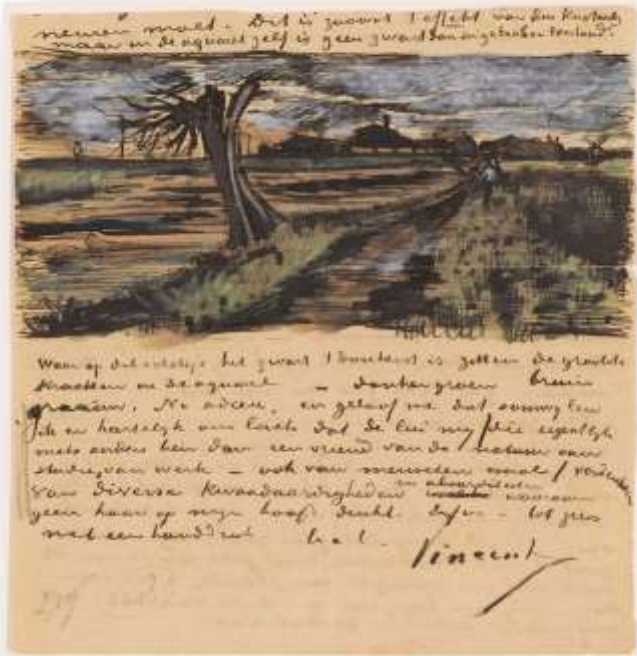 menschen maalt. Dit is zoowat 't effekt van den Knotwilg
maar in de aquarel zelf is geen zwart dan in gebroken toestand.
Waar op dit schetsje het zwart 't donkerst is zitten de grootste
krachten in de aquarel – donkergroen bruin
graauw. Nu adieu, en geloof me dat somwijlen
ik er hartelijk om lach dat de lui mij (die eigentlijk
niets anders ben dan een vriend van de natuur van
studie, van werk – ook van menschen vooral) verdenken
van diverse kwaadaardigheden en absurditeiten waarvan
geen haar op mijn hoofd denkt. Enfin – tot ziens
met een handdruk. t. à t.
Vincent